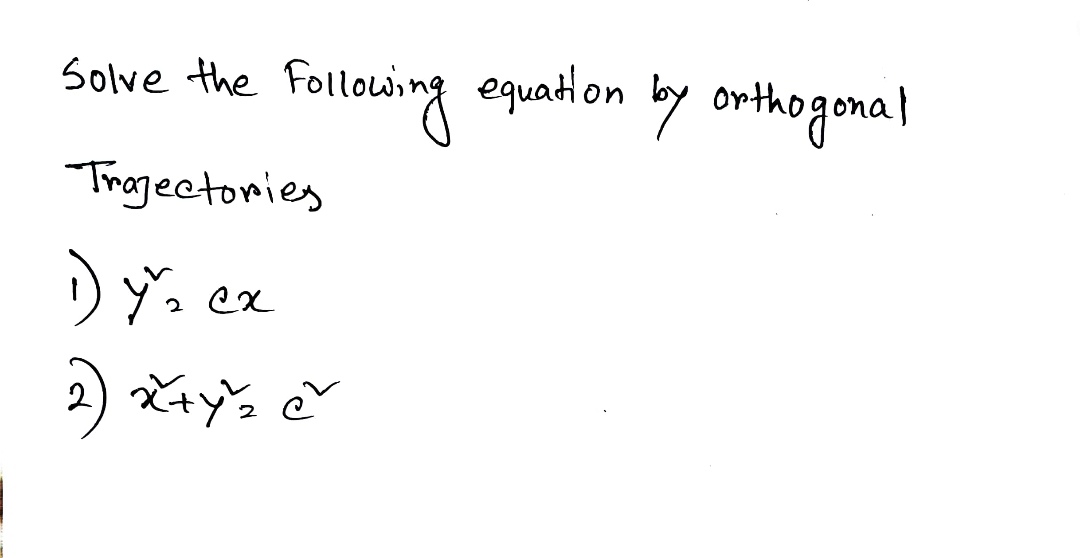 Solve the Following equation by orthogonal
Trajectories
1) y² = cx
2) x² + y² = c²